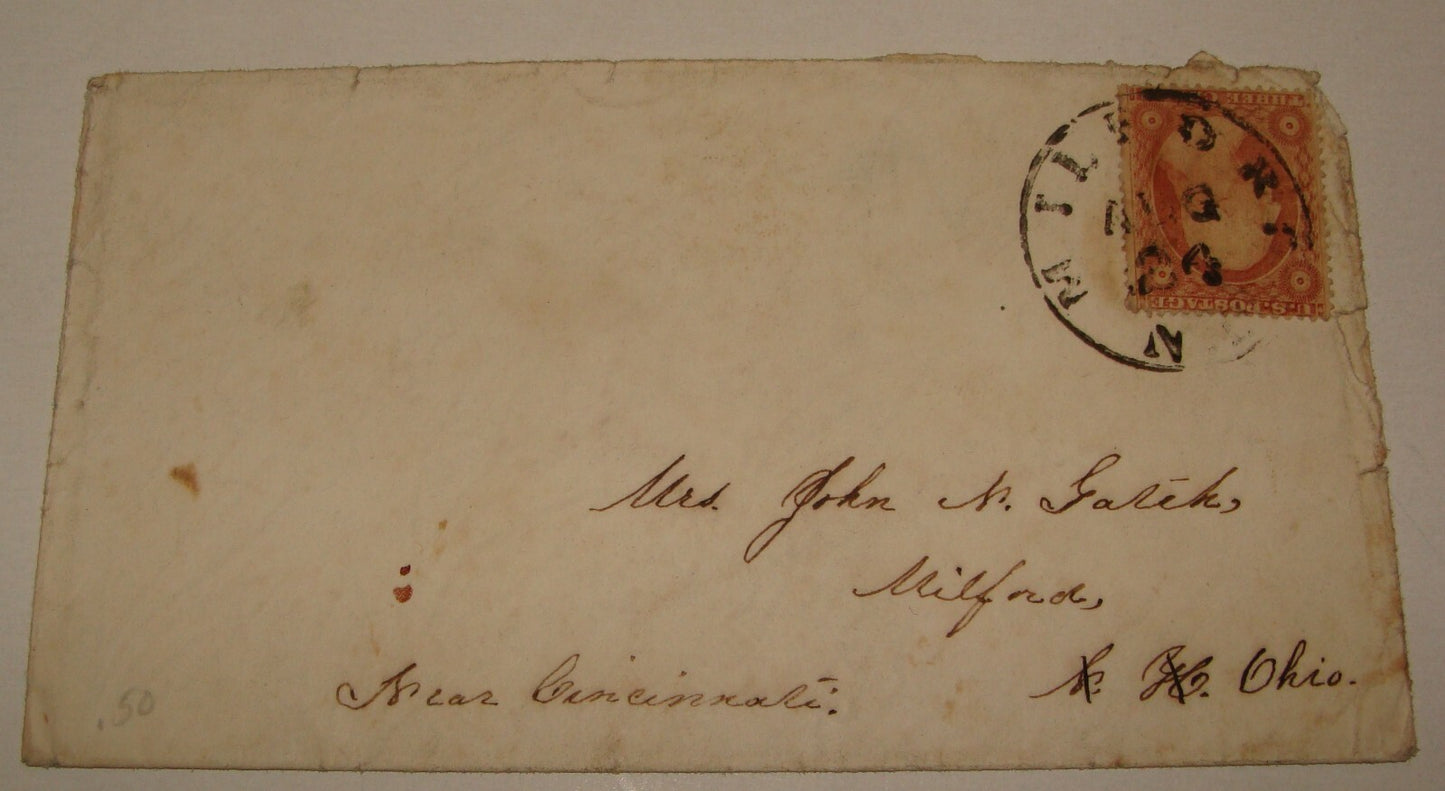 MILFORD
AUG
N
THREE
U.S. POSTAGE
Mrs. John N. Gatch,
Milford,
N. H. Ohio.
Near Cincinnati.
.50